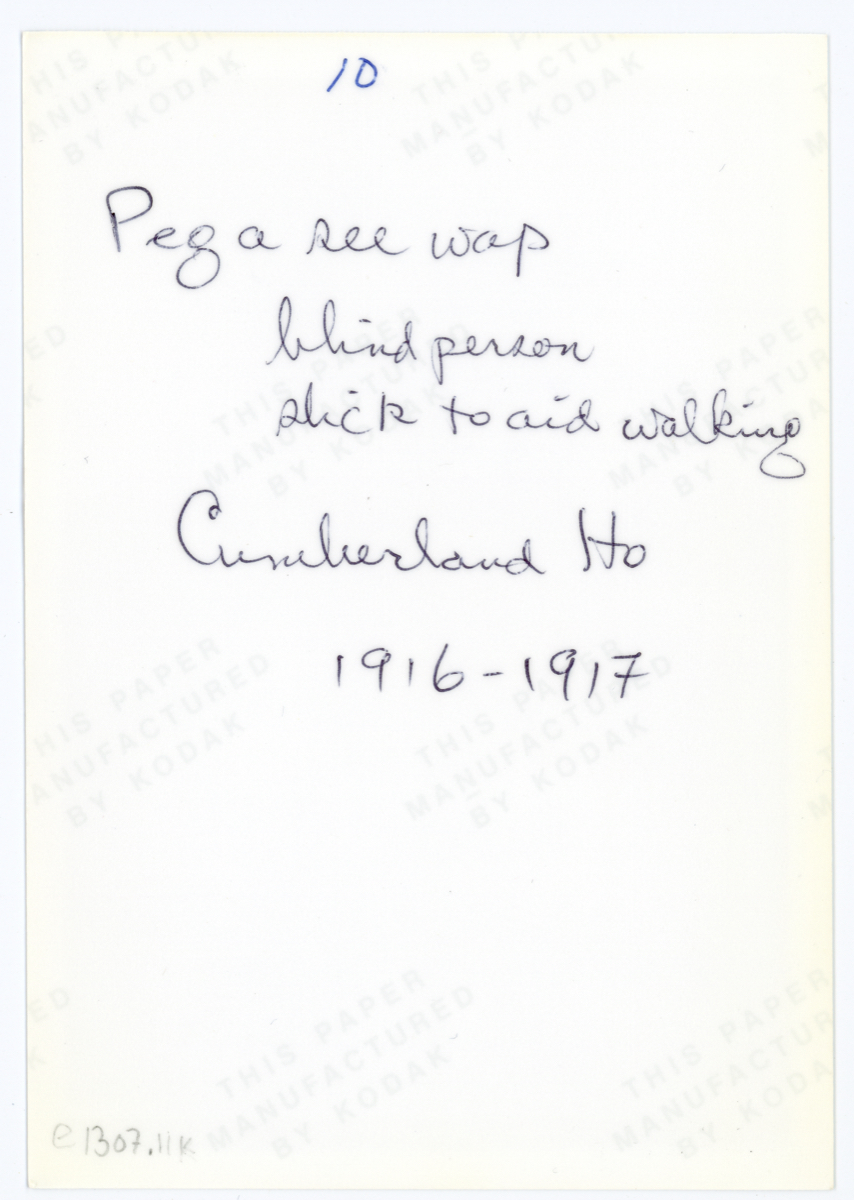 10
Peg a see wap
blind person
stick to aid walking
Cumberland Ho
1916-1917
THIS PAPER
MANUFACTURED
BY KODAK
e1307.11k